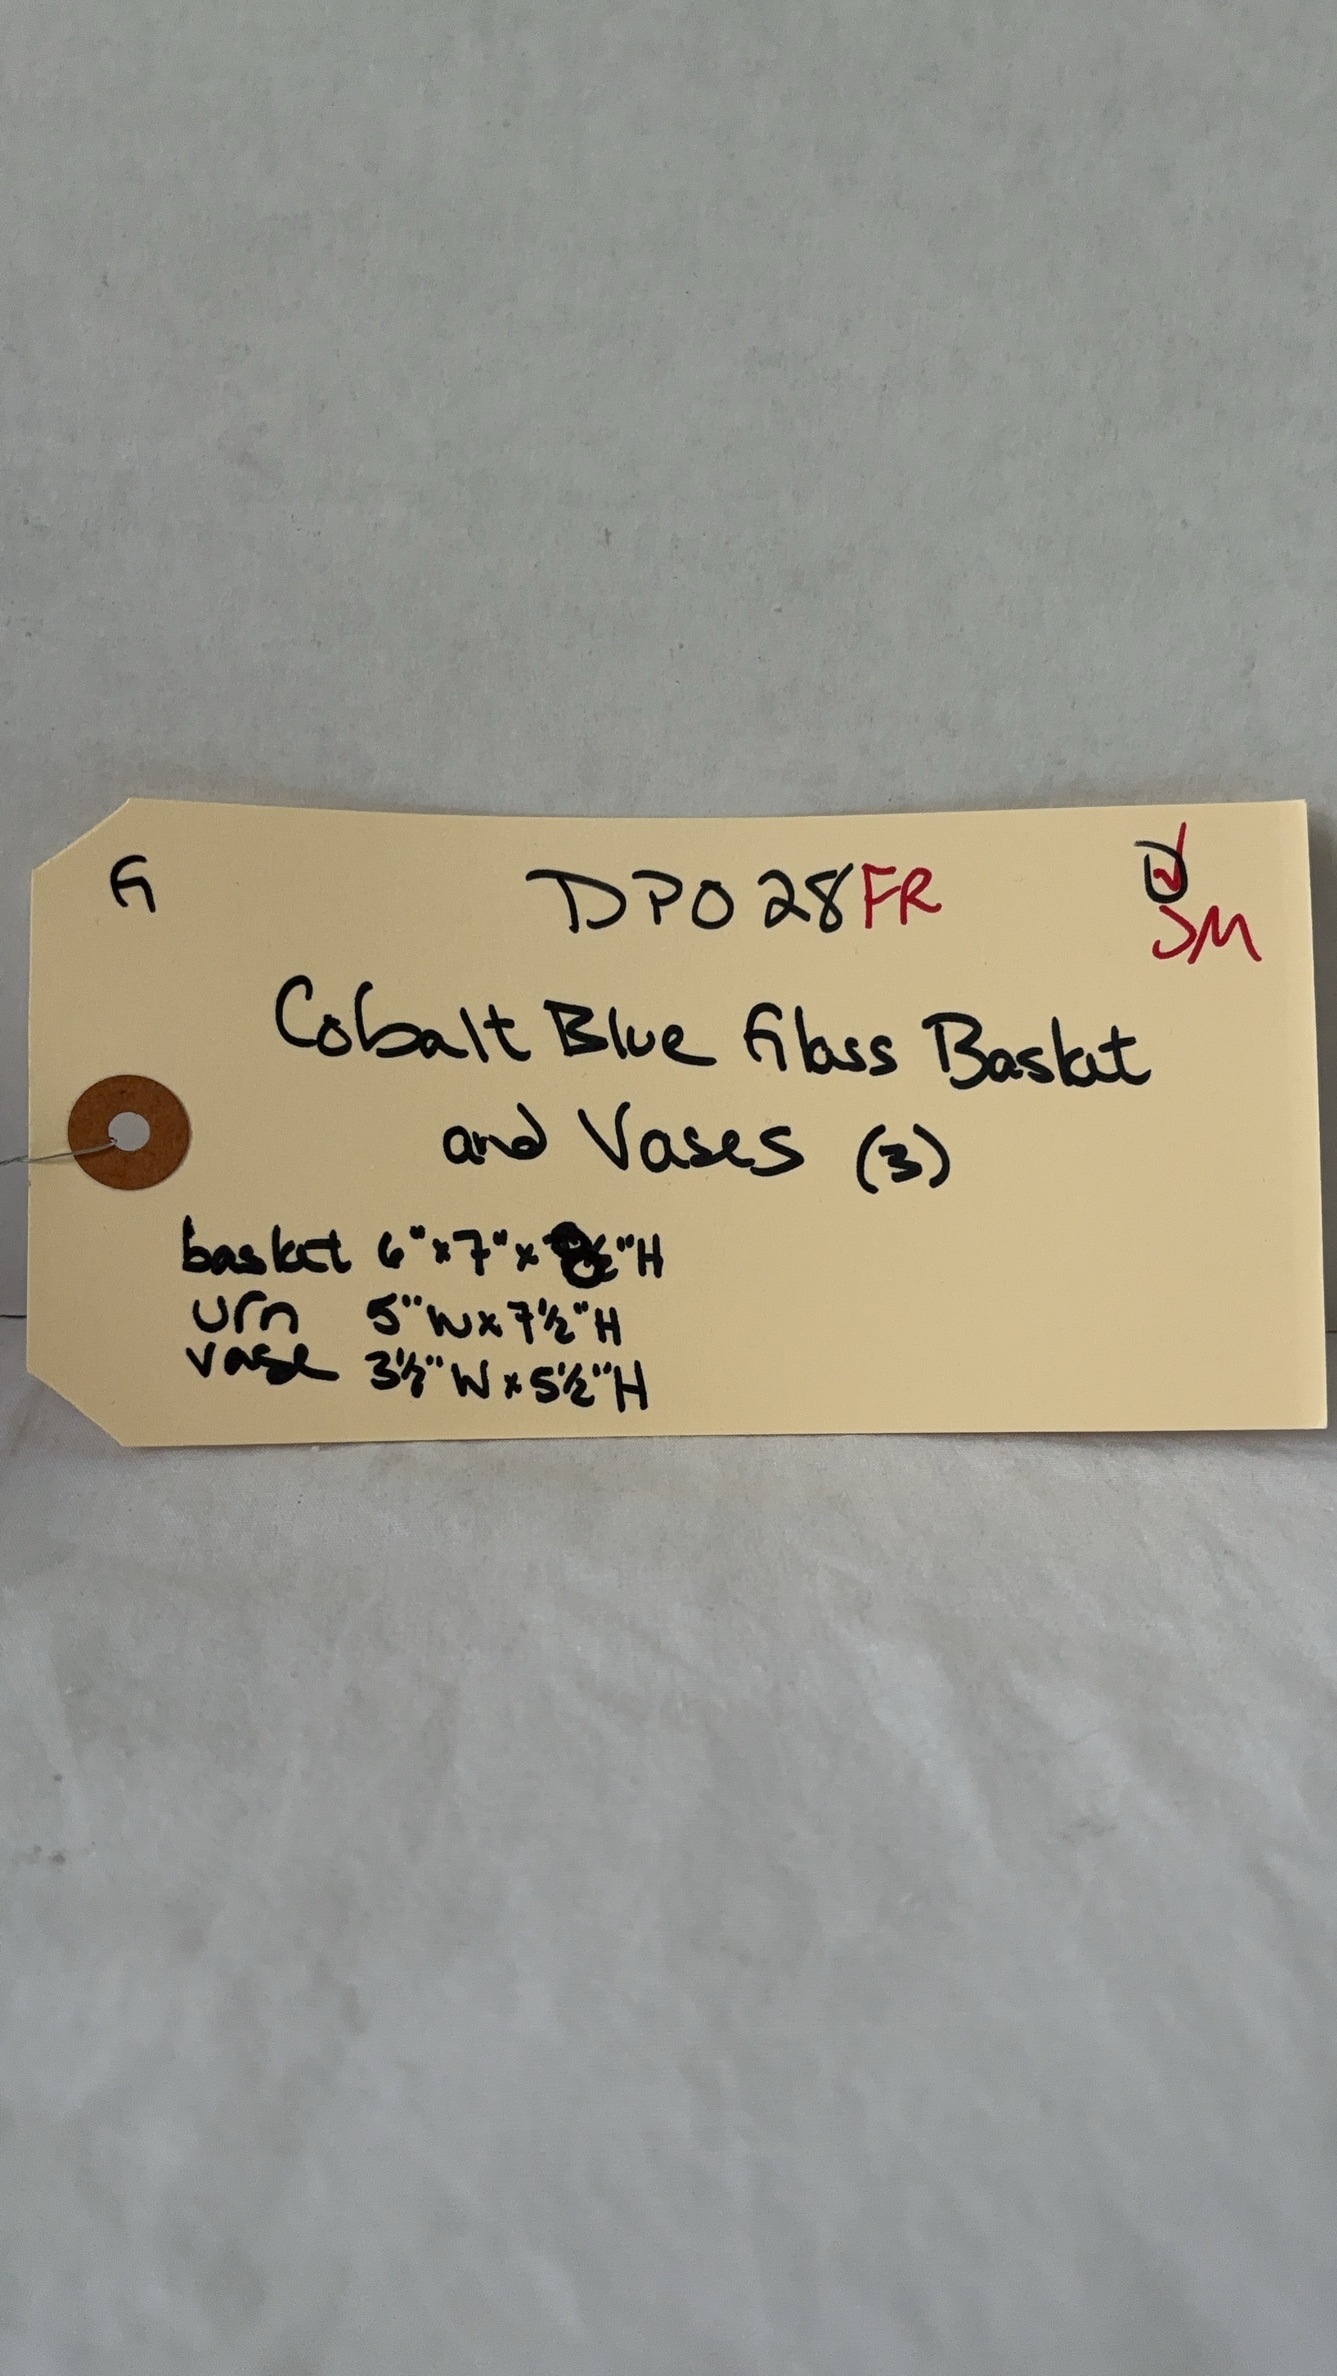 G
DP028FR
D✓
JM
Cobalt Blue Glass Basket
and Vases (3)
basket 6"x7"x "H
urn 5"W x 7½"H
vase 3½"W x 5½"H